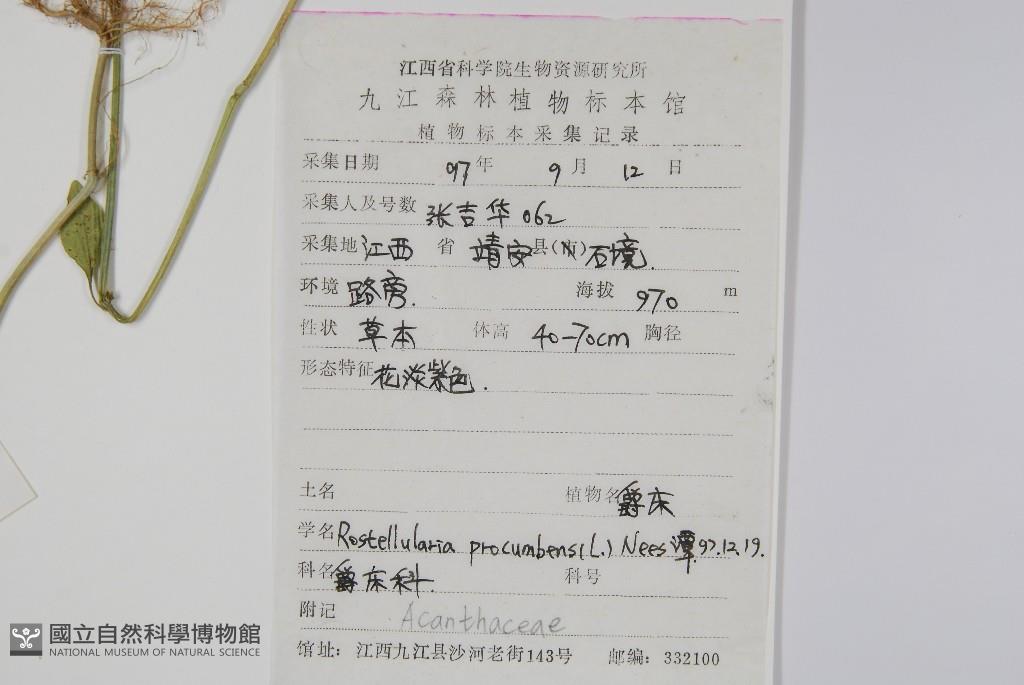 江西省科学院生物资源研究所
九江森林植物标本馆
植物标本采集记录
采集日期 97年 9月 12日
采集人及号数 张吉华 062
采集地 江西 省 靖安 县(市) 石境.
环境 路旁. 海拔 970 m
性状 草本 体高 40-70cm 胸径
形态特征 花淡紫色.
土名 植物名 爵床
学名 Rostellularia procumbens (L.) Nees 潭 97.12.19.
科名 爵床科. 科号
附记 Acanthaceae
馆址: 江西九江县沙河老街143号 邮编: 332100
國立自然科學博物館
NATIONAL MUSEUM OF NATURAL SCIENCE